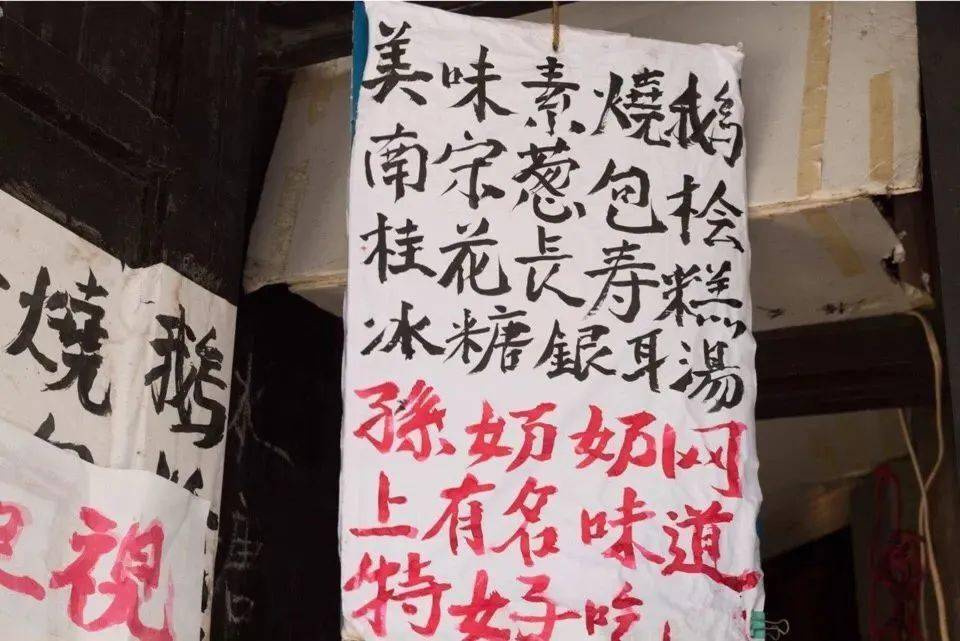 美味素燒鵝
南宋葱包桧
桂花長寿糕
冰糖銀耳湯
孫奶奶网
上有名味道
特好吃
燒鵝
視